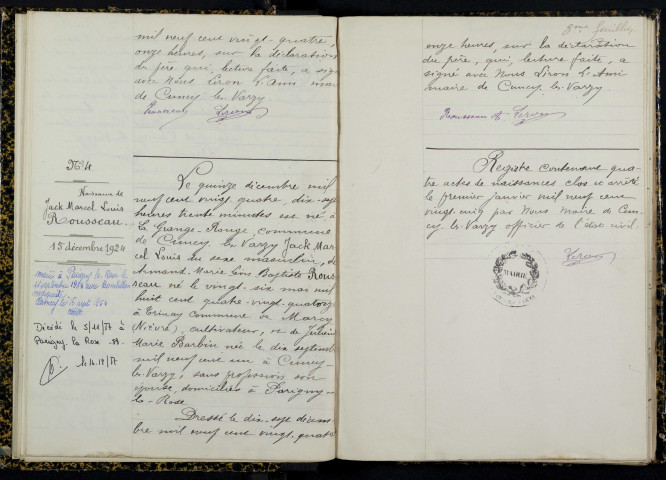 mil neuf cent vingt-quatre,
onze heures, sur la déclaration
du père qui, lecture faite, a signé
avec Nous Liron L'Ami maire
de Cuncy-les-Varzy.
Rousseau Liron
N° 4
Naissance de
Jack Marcel Louis
Rousseau
15 décembre 1924
Marié à Parigny la Rose le
septembre
le 15 sept 1954
Décédé le 5/11/77 à
Parigny la Rose 58.
le 16.12/77
Le quinze décembre mil
neuf cent vingt quatre, dix-sept
heures trente minutes est né à
la Grange-Rouge, commune
de Cuncy les Varzy Jack Mar-
cel Louis du sexe masculin, de
Armand Marie Louis Baptiste Rous-
seau né le vingt-six mai mil
huit cent quatre-vingt-quatorze
à commune de Marcy
(Nièvre), cultivateur, et de
Marie Barbin née le dix septembre
mil neuf cent un à Cuncy-
les-Varzy, sans profession son
épouse, domiciliés à Parigny-
la-Rose.
Dressé le dix-sept décem-
bre mil neuf cent vingt-quatre
onze heures, sur la déclaration
du père, qui, lecture faite, a
signé avec Nous Liron L'Ami
maire de Cuncy-les-Varzy
Rousseau A. Liron
Registre contenant qua-
tre actes de naissances clos et arrêté
le premier janvier mil neuf cent
vingt-cinq par Nous Maire de Cun-
cy-les-Varzy officier de l'état civil.
Liron
MAIRIE